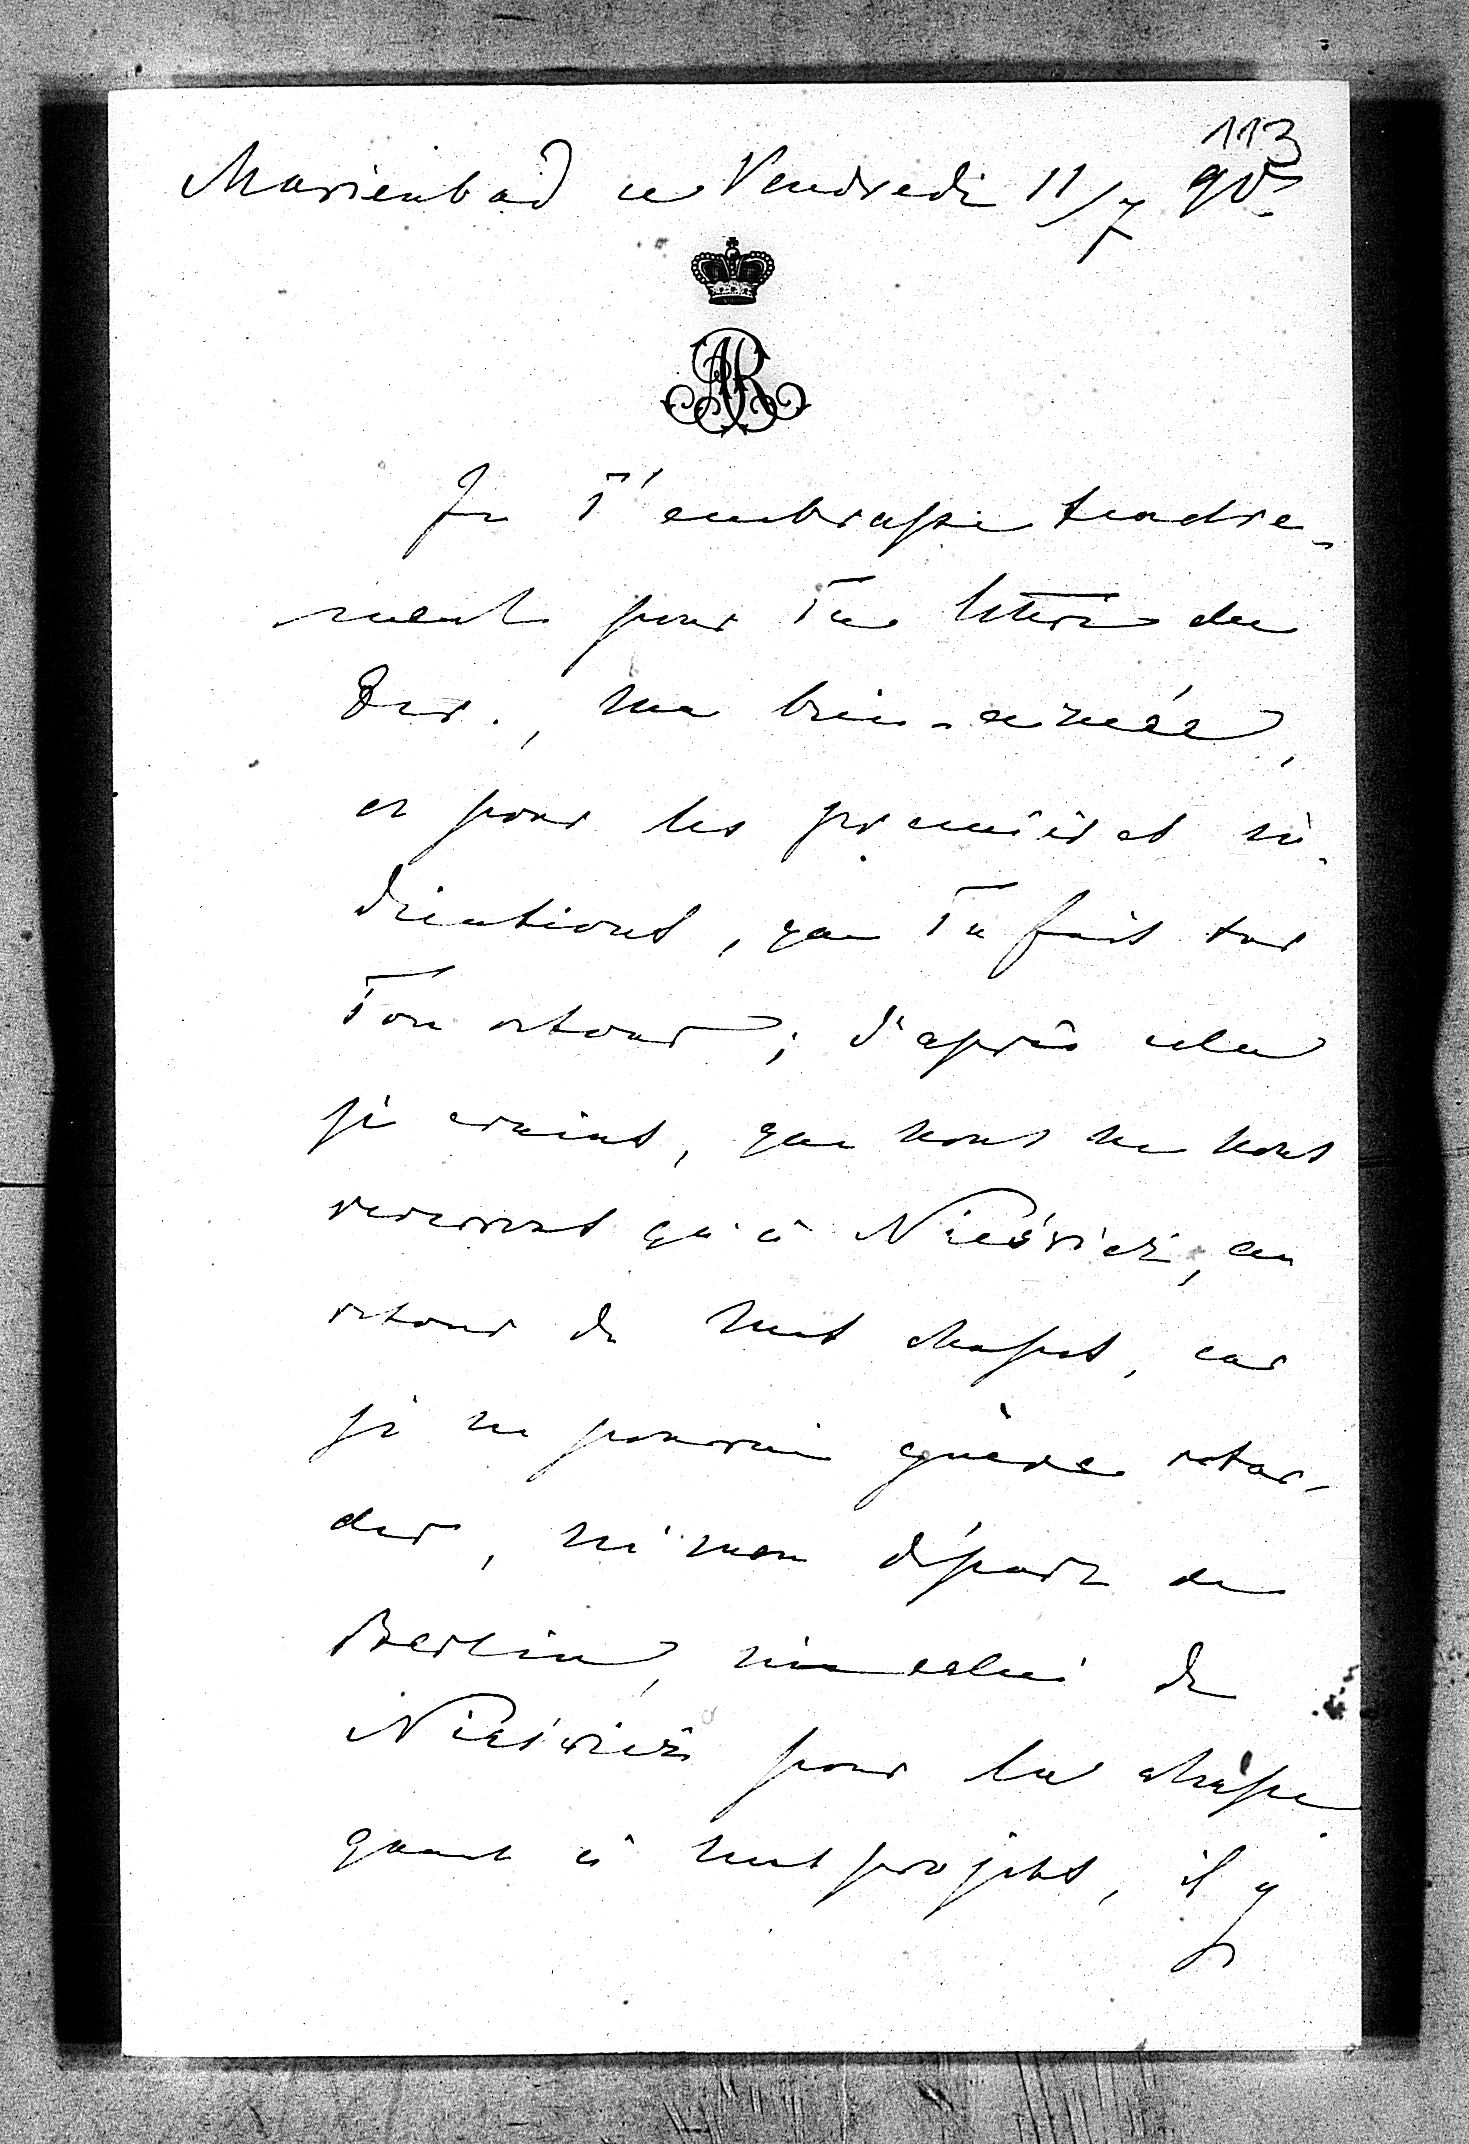 113
Marienbad ce Vendredi 11/7 90.
AR
Je T'embrasse tendre-
ment pour Ta lettre du
ma bien-aimée,
et pour les premières in-
dications, que Tu fais sur
Ton retour; d'après cela
je crains, que nous ne nous
reverrons qu'à Nieśwież, au
retour de mes chasses, car
je ne pourrai guère retar-
der, ni mon départ de
Berlin, ni celui de
Nieśwież pour la chasse
quant à mes projets, il y